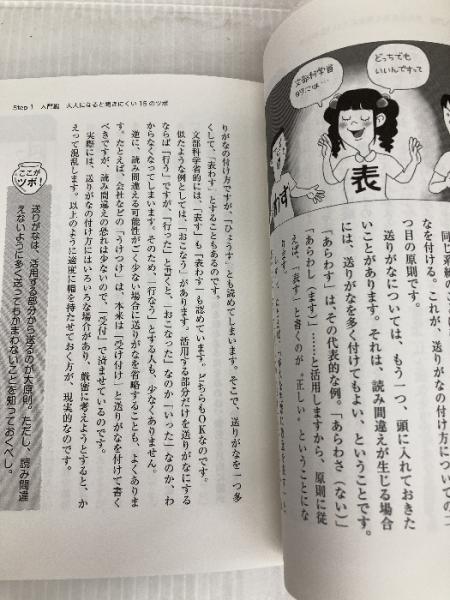 文部科学省
的には…
どっちでも
いいんですって
表
わす
なを付ける。これが、送りがなの付け方についての二
つ目の原則です。
送りがなについては、もう一つ、頭に入れておきた
いことがあります。それは、読み間違えが生じる場合
には、送りがなを多く付けてもよい、ということです。
「あらわす」は、その代表的な例。「あらわさ（ない）」
「あらわし（ます）」……と活用しますから、原則に従
えば、「表す」と書くのが〝正しい〟ということにな
ります。
Step 1 入門編 大人になると聞きにくい16のツボ
りがなの付け方ですが、「ひょうす」とも読めてしまいます。そこで、送りがなを一つ多
くして、「表わす」とすることもあるのです。
文部科学省的には、「表す」も「表わす」も認めています。どちらもOKなのです。
似たような例としては、「おこなう」があります。活用する部分だけを送りがなにする
ならば「行う」ですが、「行った」と書くと、「おこなった」なのか「いった」なのか、わ
からなくなってしまいます。そのため、「行なう」とする人も、少なくありません。
逆に、読み間違える可能性がごく少ない場合に送りがなを省略することも、よくありま
す。たとえば、会社などの「うけつけ」は、本来は「受け付け」と送りがなを付けて書く
べきですが、読み間違えの恐れは少ないので、「受付」で済ませているのです。
実際には、送りがなの付け方にはいろいろな場合があり、厳密に考えようとすると、か
えって混乱します。以上のように適度に幅を持たせておく方が、現実的なのです。
ここが
ツボ！
送りがなは、活用する部分から送るのが大原則。ただし、読み間違
えないように多く送ってもかまわないことを知っておくべし。